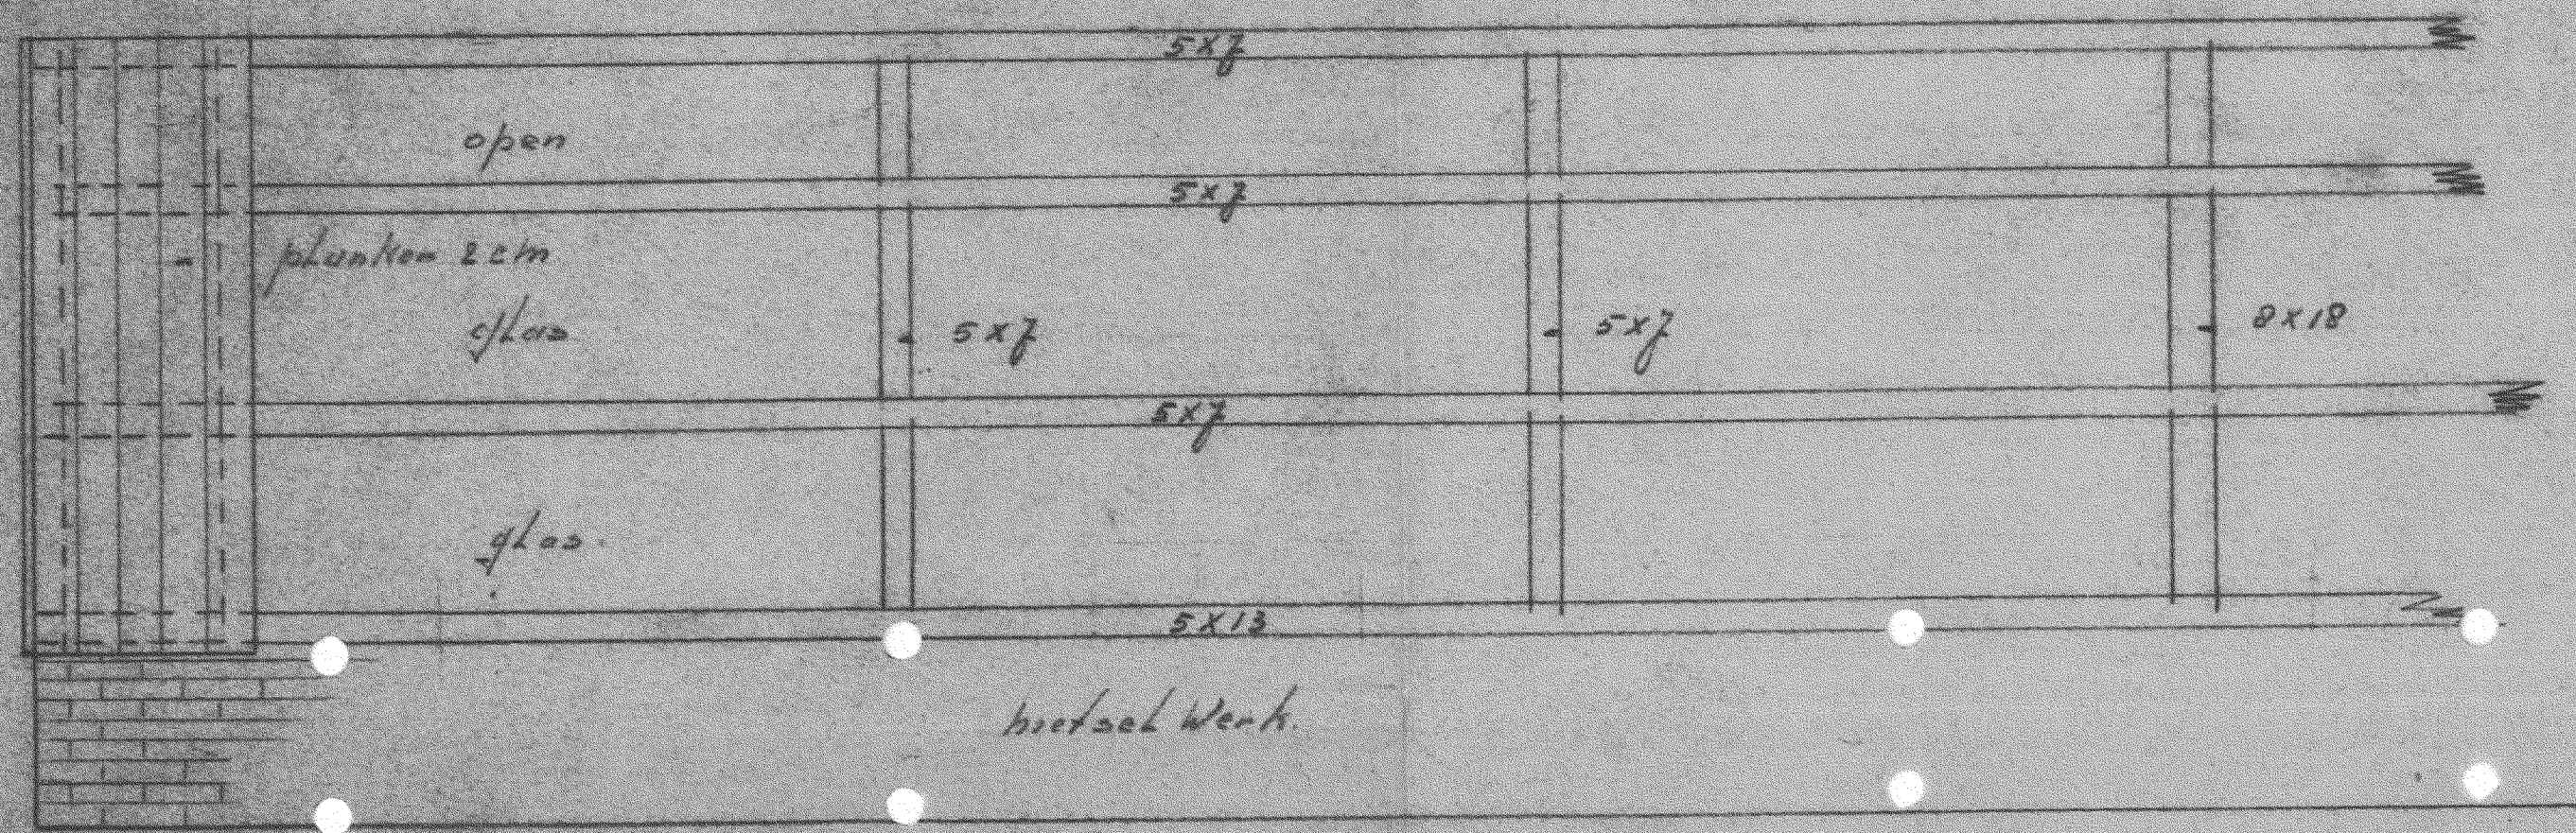 5x7
open
5x7
planken 2 cm
glas
5x7
5x7
8x18
5x7
glas.
5x13
metsel Werk.